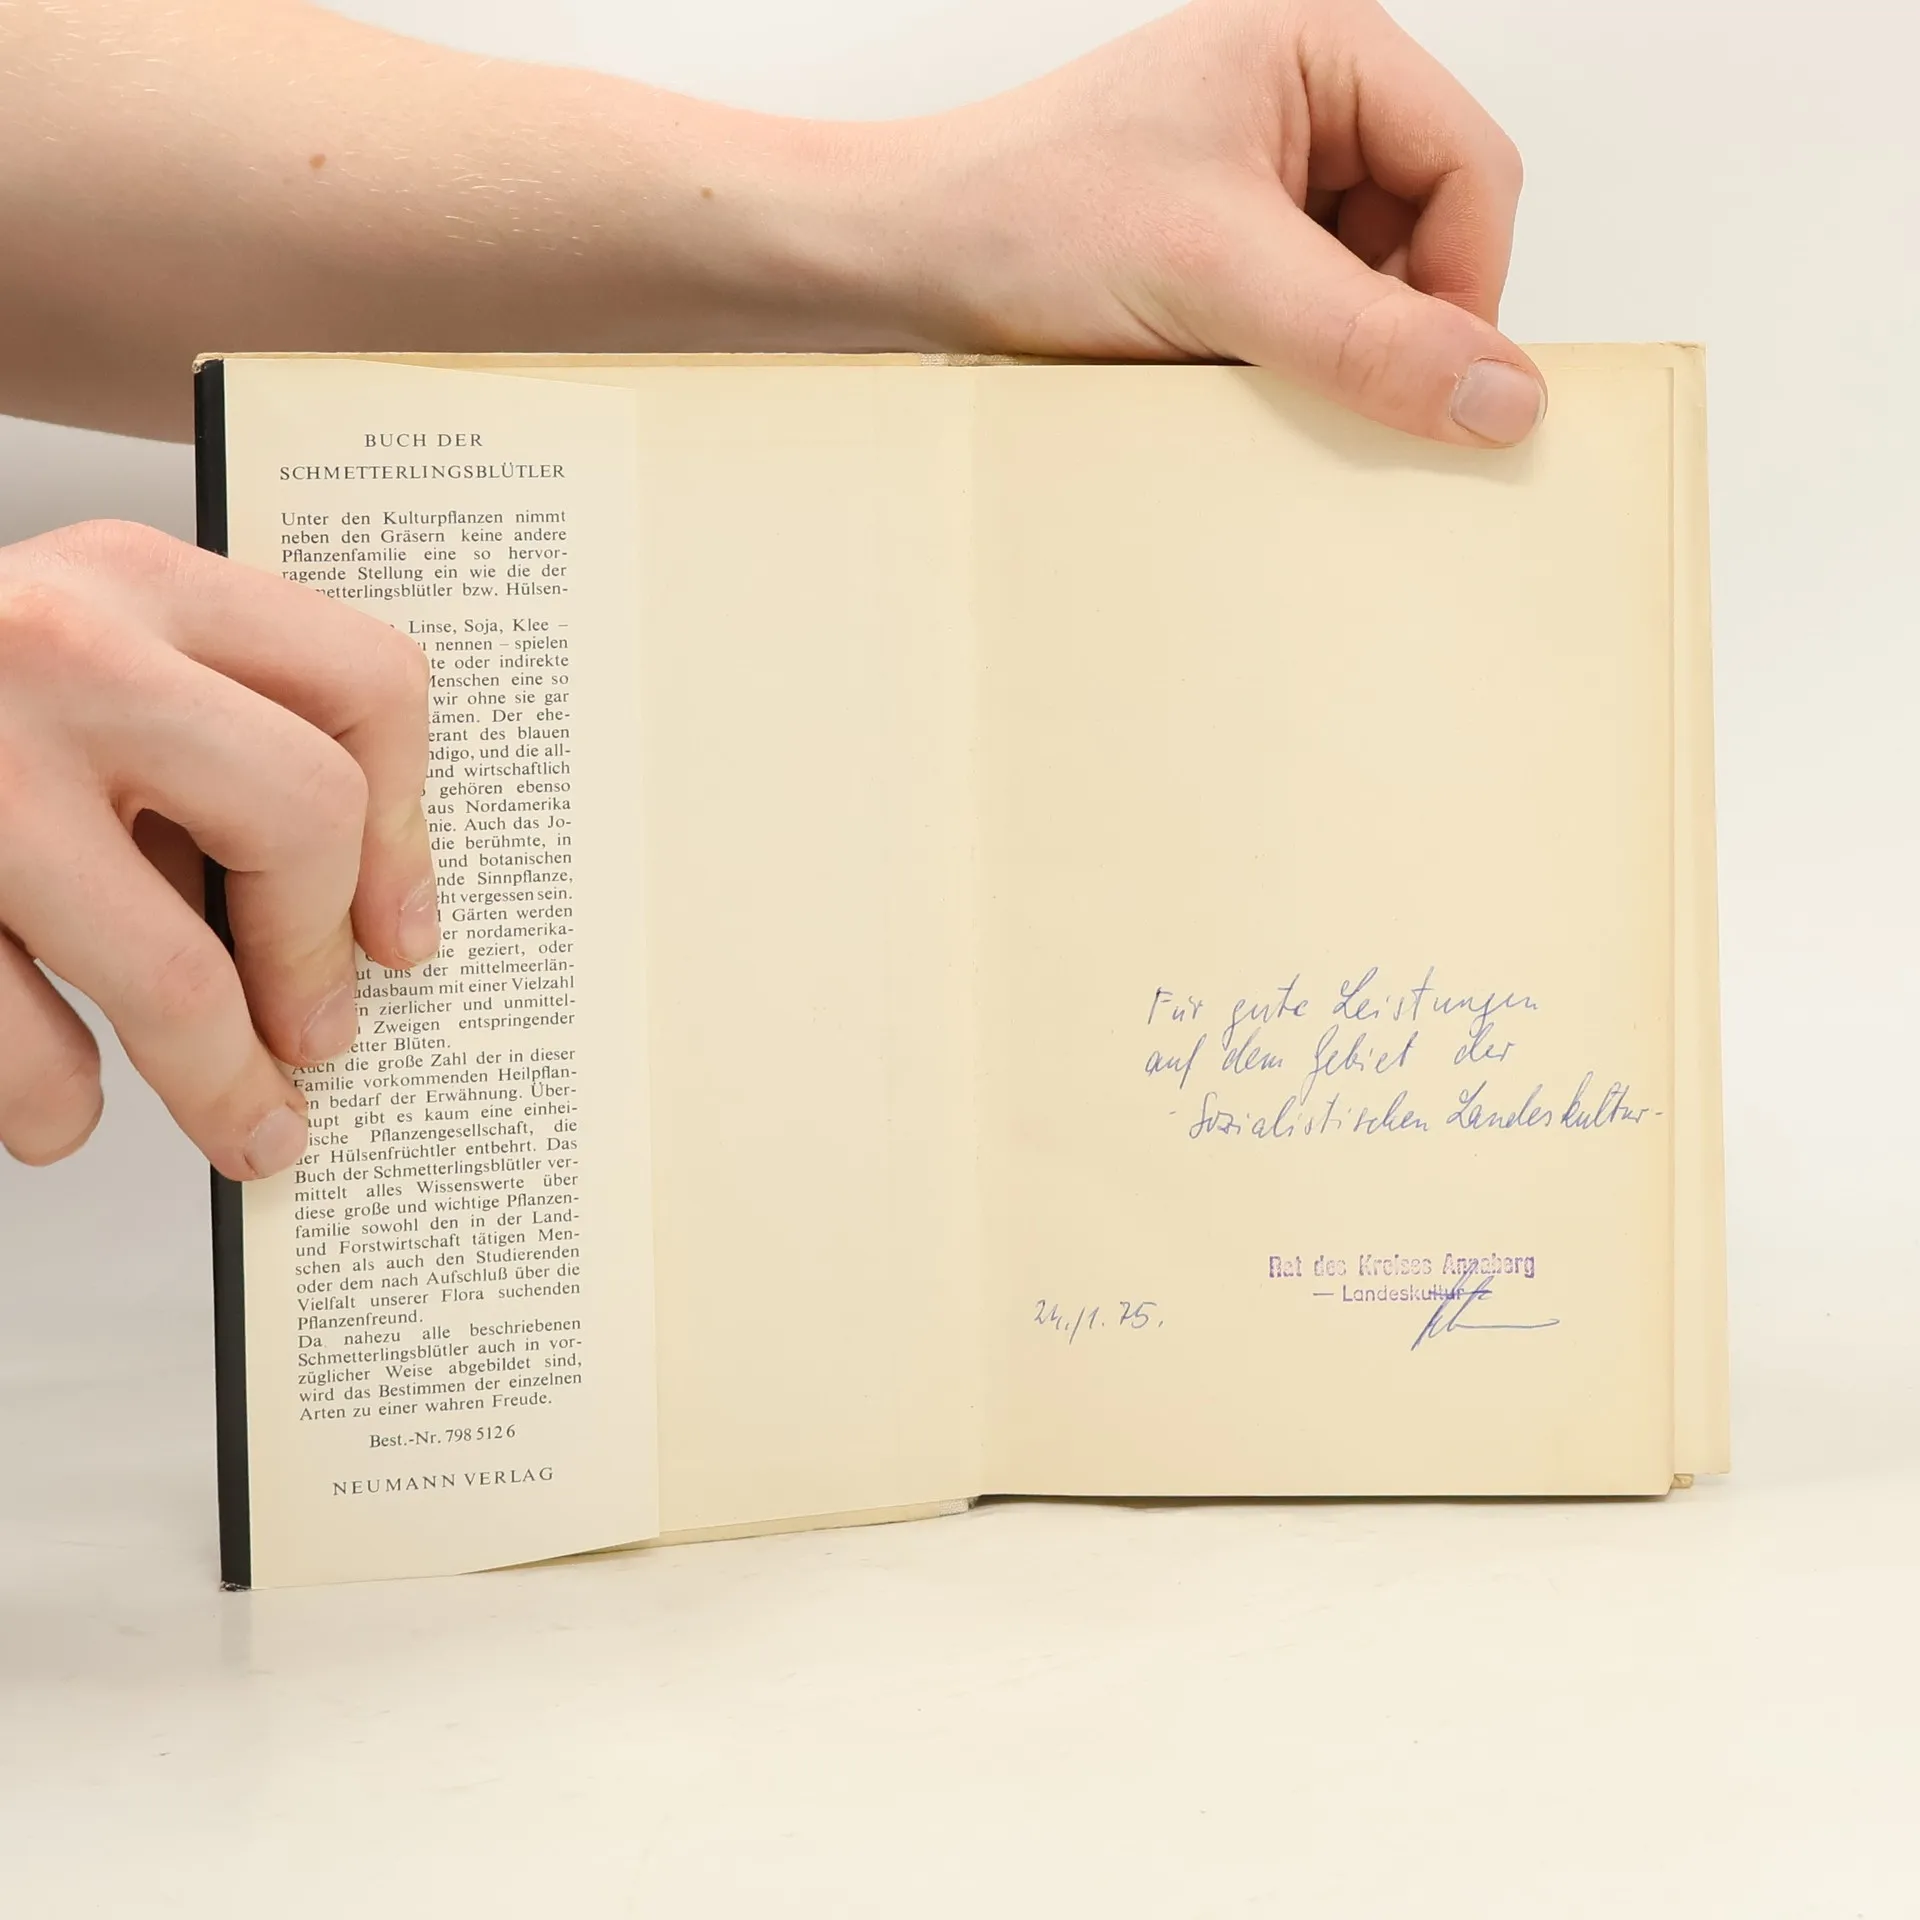 BUCH DER
SCHMETTERLINGSBLÜTLER
Unter den Kulturpflanzen nimmt
neben den Gräsern keine andere
Pflanzenfamilie eine so hervor-
ragende Stellung ein wie die der
metterlingsblütler bzw. Hülsen-
Linse, Soja, Klee –
nennen – spielen
te oder indirekte
Menschen eine so
wir ohne sie gar
kämen. Der ehe-
erant des blauen
ndigo, und die all-
und wirtschaftlich
gehören ebenso
aus Nordamerika
nie. Auch das Jo-
die berühmte, in
und botanischen
nde Sinnpflanze,
cht vergessen sein.
Gärten werden
er nordamerika-
ie geziert, oder
ut uns der mittelmeerlän-
udasbaum mit einer Vielzahl
in zierlicher und unmittel-
Zweigen entspringender
etter Blüten.
Auch die große Zahl der in dieser
Familie vorkommenden Heilpflan-
en bedarf der Erwähnung. Über-
aupt gibt es kaum eine einhei-
ische Pflanzengesellschaft, die
der Hülsenfrüchtler entbehrt. Das
Buch der Schmetterlingsblütler ver-
mittelt alles Wissenswerte über
diese große und wichtige Pflanzen-
familie sowohl den in der Land-
und Forstwirtschaft tätigen Men-
schen als auch den Studierenden
oder dem nach Aufschluß über die
Vielfalt unserer Flora suchenden
Pflanzenfreund.
Da nahezu alle beschriebenen
Schmetterlingsblütler auch in vor-
züglicher Weise abgebildet sind,
wird das Bestimmen der einzelnen
Arten zu einer wahren Freude.
Best.-Nr. 798 512 6
NEUMANN VERLAG
Für gute Leistungen
auf dem Gebiet der
- Sozialistischen Landeskultur -
Rat des Kreises Annaberg
— Landeskultur —
24./1. 75.